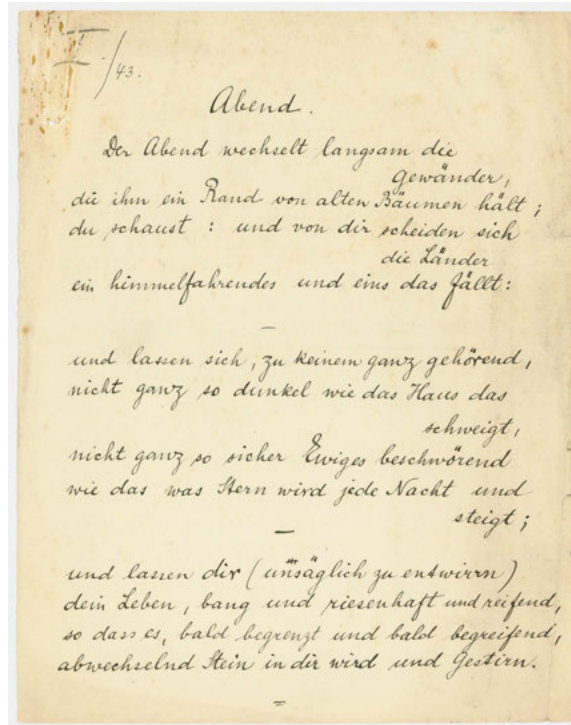 I./43.
Abend.
Der Abend wechselt langsam die
Gewänder,
die ihm ein Rand von alten Bäumen hält;
du schaust: und von dir scheiden sich
die Länder
ein himmelfahrendes und eins das fällt:
–
und lassen sich, zu keinem ganz gehörend,
nicht ganz so dunkel wie das Haus das
schweigt,
nicht ganz so sicher Ewiges beschwörend
wie das was Stern wird jede Nacht und
steigt;
–
und lassen dir (unsäglich zu entwirrn)
dein Leben, bang und riesenhaft und reifend,
so dass es, bald begrenzt und bald begreifend,
abwechselnd Stein in dir wird und Gestirn.
=